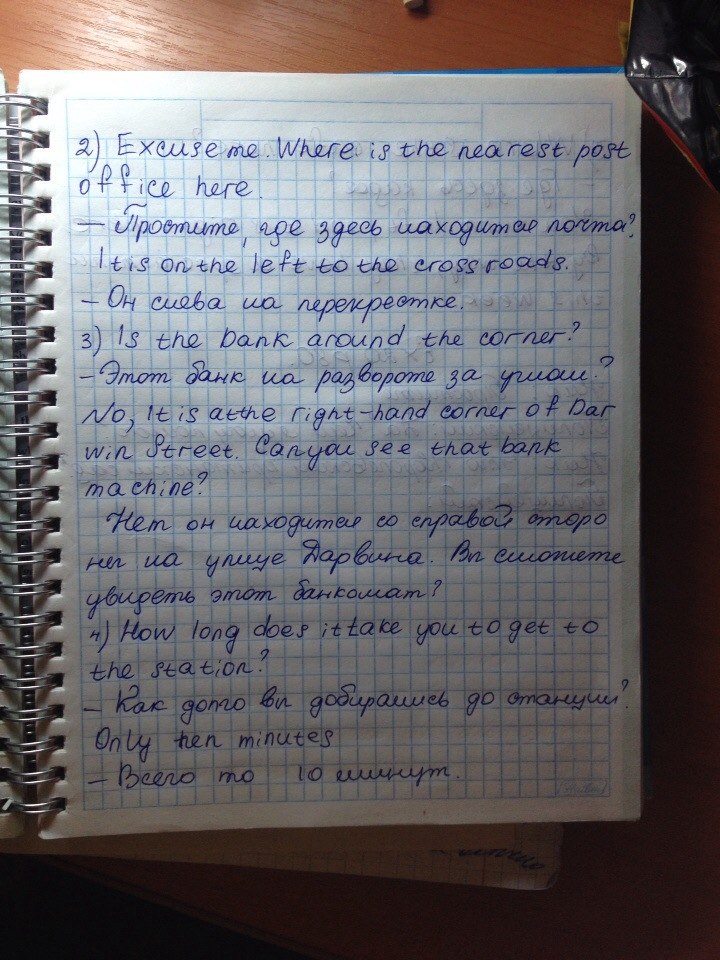 2) Excuse me. Where is the nearest post
office here.
— Простите, где здесь находится почта?
It is on the left to the crossroads.
- Он слева на перекрестке.
3) Is the bank around the corner?
- Этот банк на развороте за углом?
No, It is at the right-hand corner of Dar
win Street. Can you see that bank
machine?
Нет он находится со справой сторо
ны на улице Дарвина. Вы сможете
увидеть этот банкомат?
4) How long does it take you to get to
the station?
- Как долго вы добирались до станции?
Only ten minutes
- Всего то 10 минут.